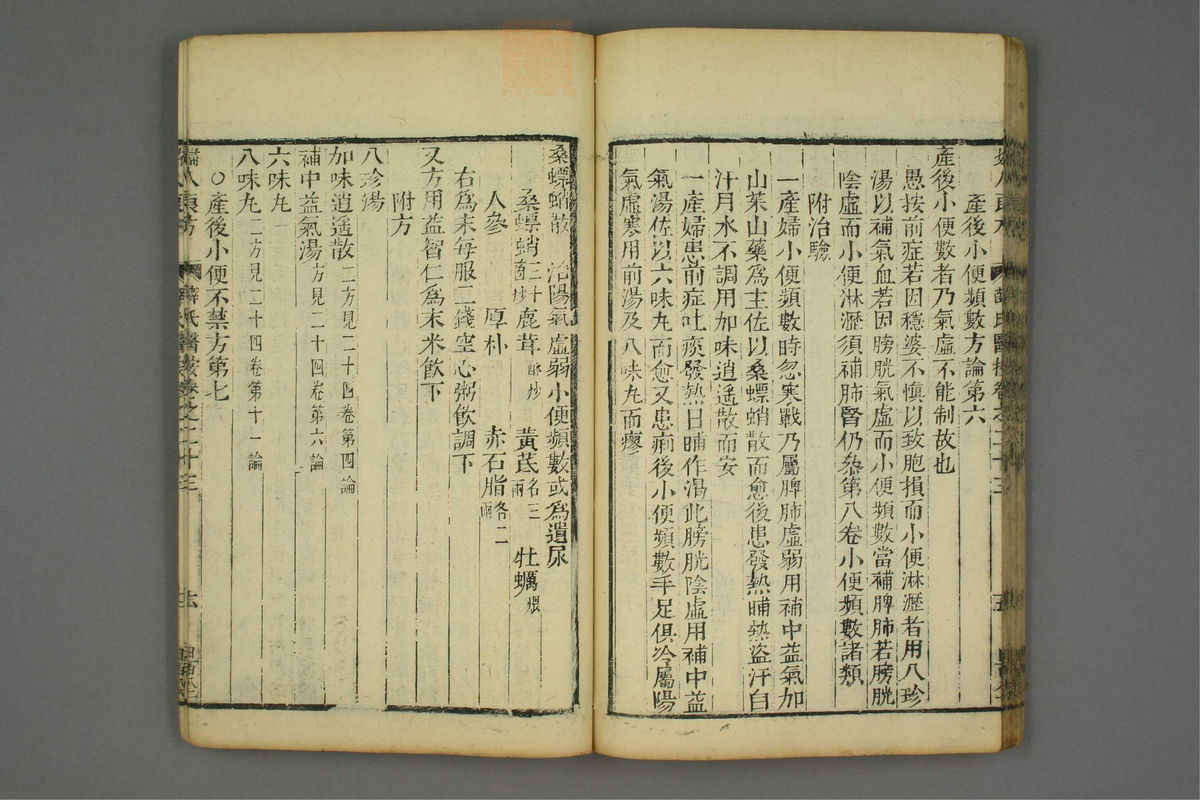 產後小便頻數方論第六
產後小便數者乃氣虛不能制故也
愚按前症若因穩婆不慎以致胞損而小便淋瀝者用八珍
湯以補氣血若因膀胱氣虛而小便頻數當補脾肺若膀胱
陰虛而小便淋瀝須補肺腎仍叅第八卷小便頻數諸類
附治驗
一產婦小便頻數時忽寒戰乃屬脾肺虛弱用補中益氣加
山茱山藥爲主佐以桑螵蛸散而愈後患發熱晡熱盜汗自
汗月水不調用加味逍遥散而安
一產婦患前症吐痰發熱日晡作渴此膀胱陰虛用補中益
氣湯佐以六味丸而愈又患痢後小便頻數手足俱冷屬陽
氣虛寒用前湯及八味丸而瘳
桑螵蛸散 治陽氣虛弱小便頻數或爲遺尿
桑螵蛸三十箇炒 鹿茸酥炒 黃芪各三兩 牡蠣煨
人參 厚朴 赤石脂各二兩
右爲末每服二錢空心粥飲調下
又方用益智仁爲末米飲下
附方
八珍湯
加味逍遥散二方見二十四卷第四論
補中益氣湯方見二十四卷第六論
六味丸
八味丸二方見二十四卷第十一論
○產後小便不禁方第七
薛氏醫按卷之二十三